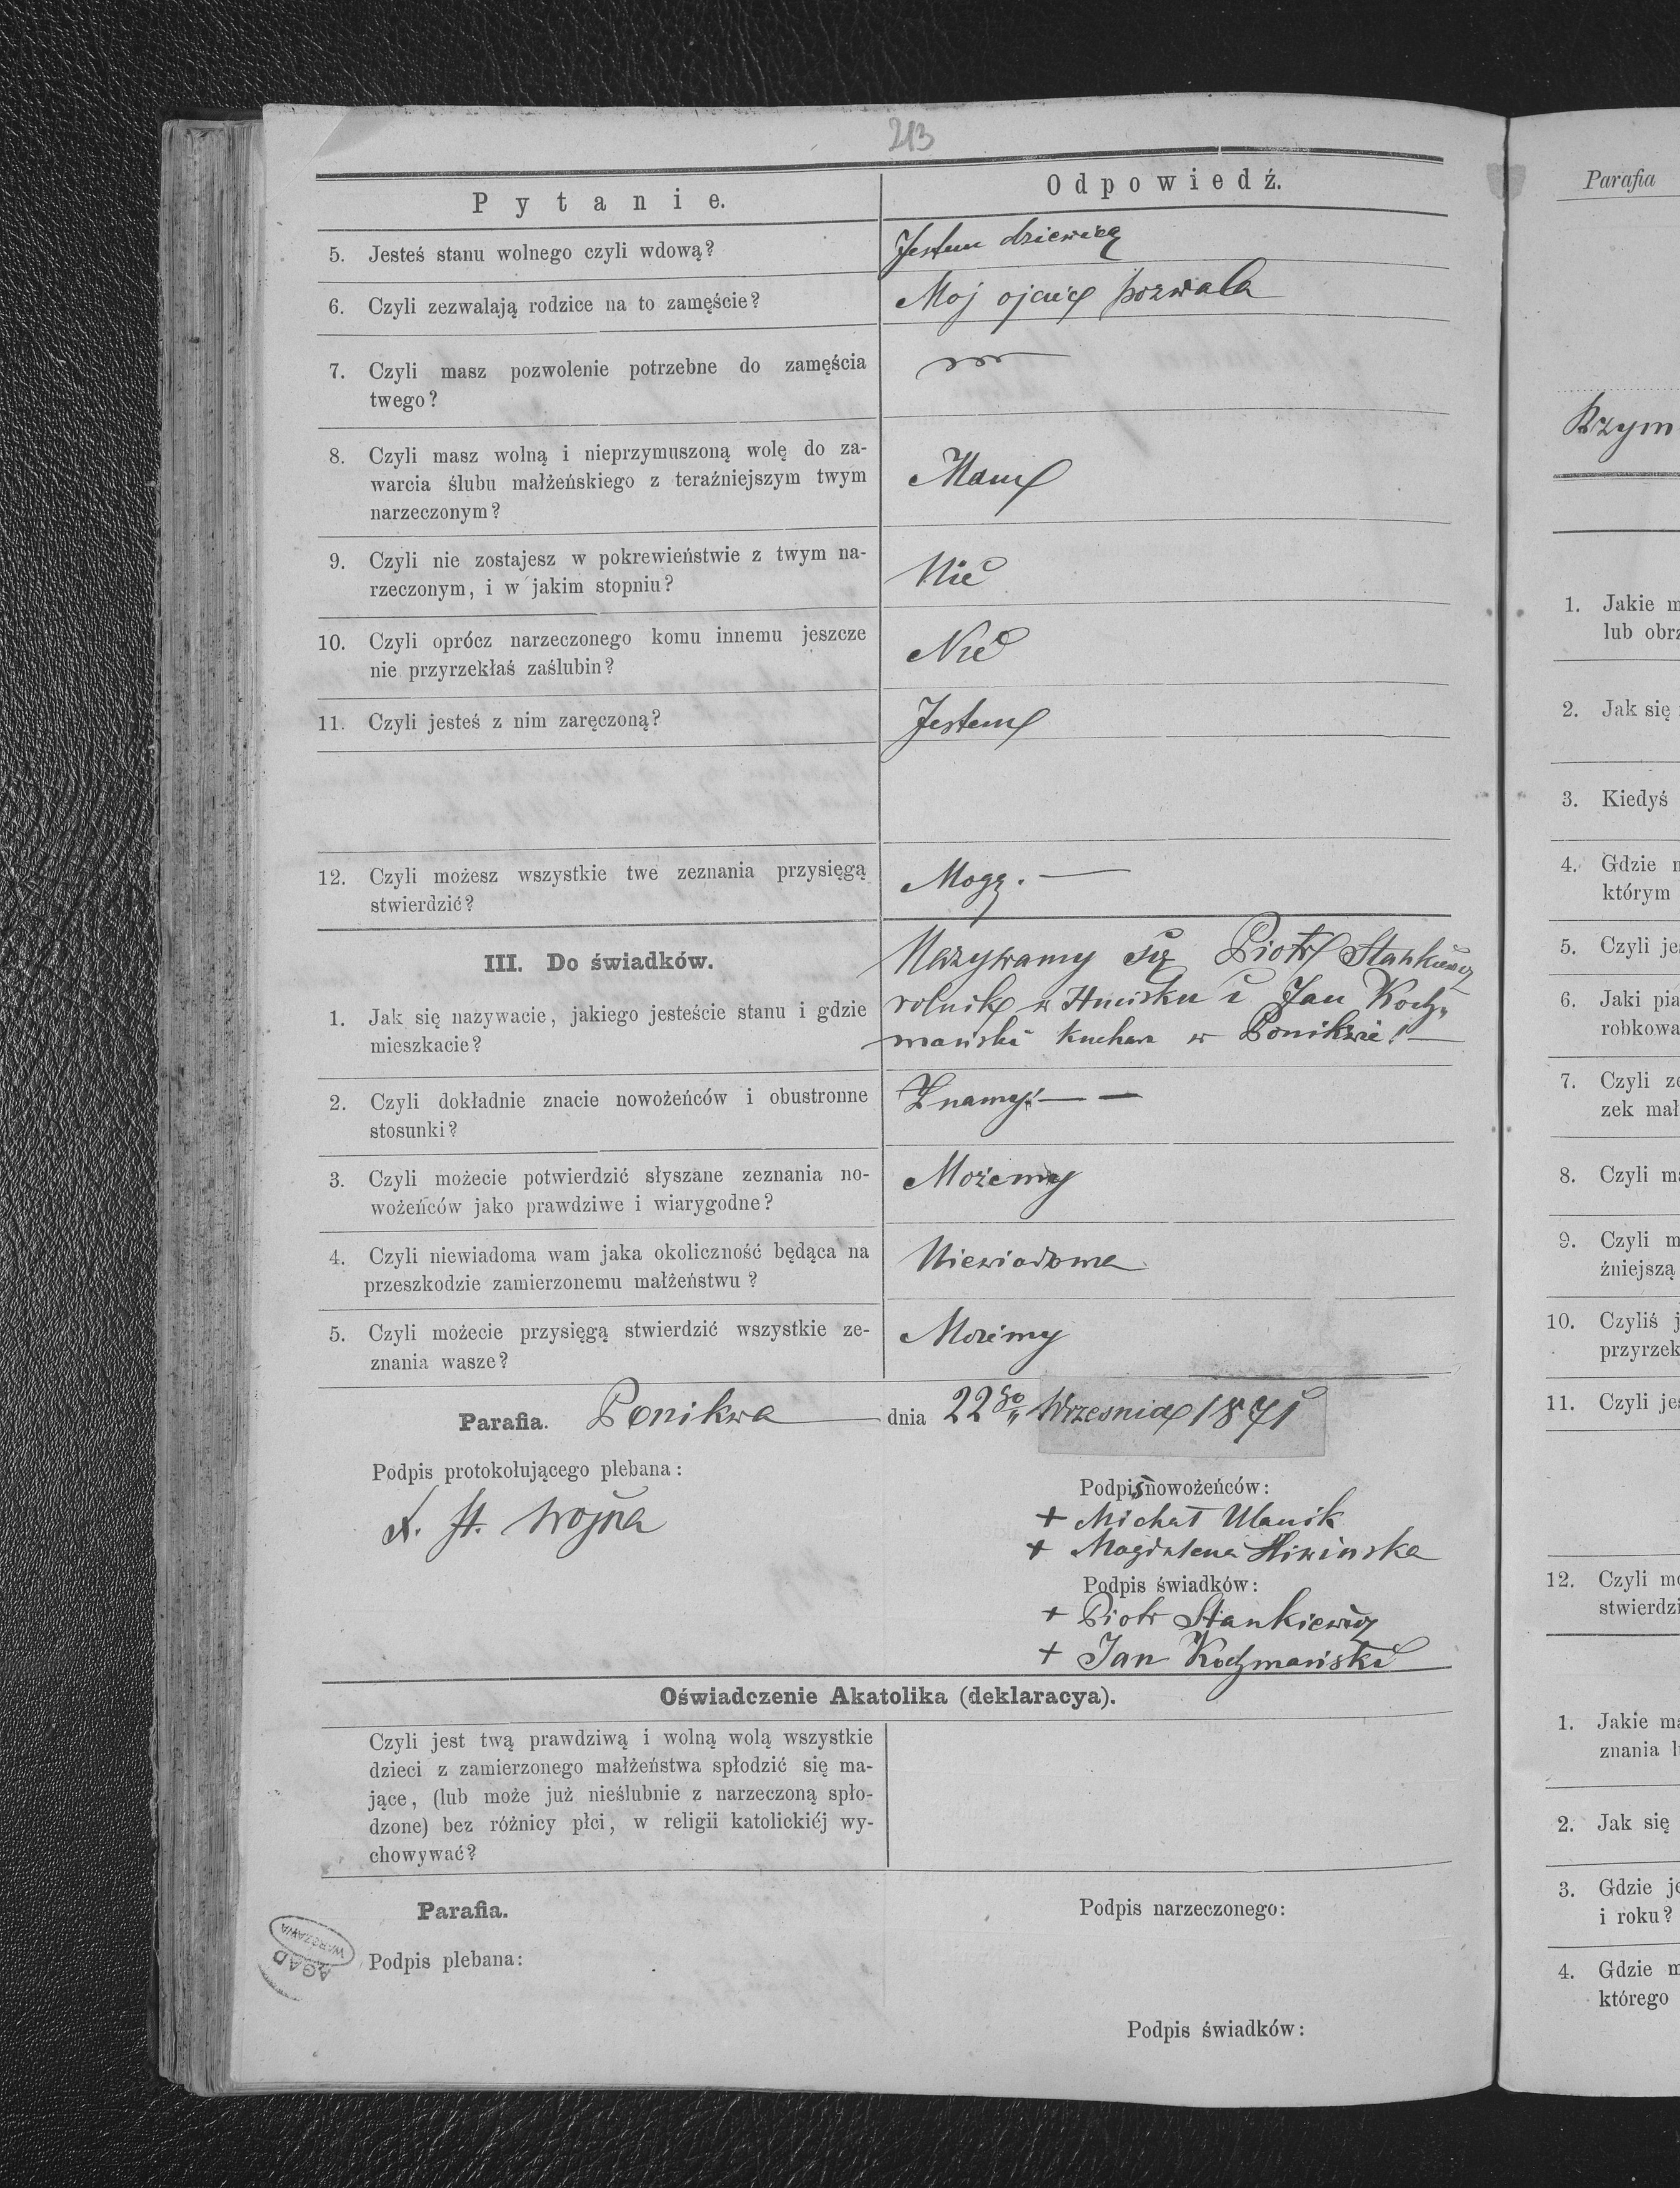 213
Pytanie.
Odpowiedź.
5. Jesteś stanu wolnego czyli wdową?
Jestem dziewicą
6. Czyli zezwalają rodzice na to zamęście?
Moj ojciec pozwala
7. Czyli masz pozwolenie potrzebne do zamęścia
twego?
8. Czyli masz wolną i nieprzymuszoną wolę do za-
warcia ślubu małżeńskiego z teraźniejszym twym
narzeczonym?
Mam
9. Czyli nie zostajesz w pokrewieństwie z twym na-
rzeczonym, i w jakim stopniu?
Nie
10. Czyli oprócz narzeczonego komu innemu jeszcze
nie przyrzekłaś zaślubin?
Nie
11. Czyli jesteś z nim zaręczoną?
Jestem
12. Czyli możesz wszystkie twe zeznania przysięgą
stwierdzić?
Mogę. —
III. Do świadków.
1. Jak się nazywacie, jakiego jesteście stanu i gdzie
mieszkacie?
Nazywamy się Piotr Stankiewicz
rolnik w Hucisku i Jan Kocz„
mański kucharz w Ponikwie! —
2. Czyli dokładnie znacie nowożeńców i obustronne
stosunki?
Znamy! — —
3. Czyli możecie potwierdzić słyszane zeznania no-
wożeńców jako prawdziwe i wiarygodne?
Możemy
4. Czyli niewiadoma wam jaka okoliczność będąca na
przeszkodzie zamierzonemu małżeństwu?
Niewiadoma
5. Czyli możecie przysięgą stwierdzić wszystkie ze-
znania wasze?
Możemy
Parafia. Ponikwa — dnia 22go Wrzesnia 1871
Podpis protokołującego plebana:
X. St. Wojna
Podpis nowożeńców:
+ Michał Ulanik
+ Magdalena Hiwinska
Podpis świadków:
+ Piotr Stankiewicz
+ Jan Koczmański
Oświadczenie Akatolika (deklaracya).
Czyli jest twą prawdziwą i wolną wolą wszystkie
dzieci z zamierzonego małżeństwa spłodzić się ma-
jące, (lub może już nieślubnie z narzeczoną spło-
dzone) bez różnicy płci, w religii katolickiéj wy-
chowywać?
Parafia.
Podpis narzeczonego:
Podpis plebana:
Podpis świadków:
AGAD
WARSZAWA
Parafia
1. Jakie m
lub obrz
2. Jak się
3. Kiedyś
4. Gdzie m
którym
5. Czyli je
6. Jaki pia
robkowa
7. Czyli ze
zek mał
8. Czyli ma
9. Czyli m
źniejszą
10. Czyliś j
przyrzek
11. Czyli jes
12. Czyli mo
stwierdzi
1. Jakie ma
znania l
2. Jak się
3. Gdzie je
i roku?
4. Gdzie m
którego